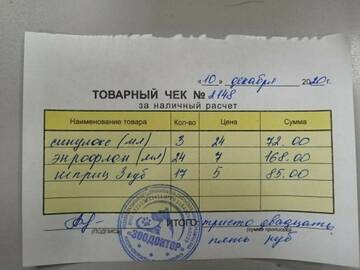 «10» декабря 2020 г.
ТОВАРНЫЙ ЧЕК № 2148
за наличный расчет
Наименование товара Кол-во Цена Сумма
синулокс (мл) 3 24 72.00
энрофлон (мл) 24 7 168.00
шприц 3 куб 17 5 85.00
ИТОГО: триста двадцать
(подпись) (сумма прописью)
пять руб
ЗООДОКТОР